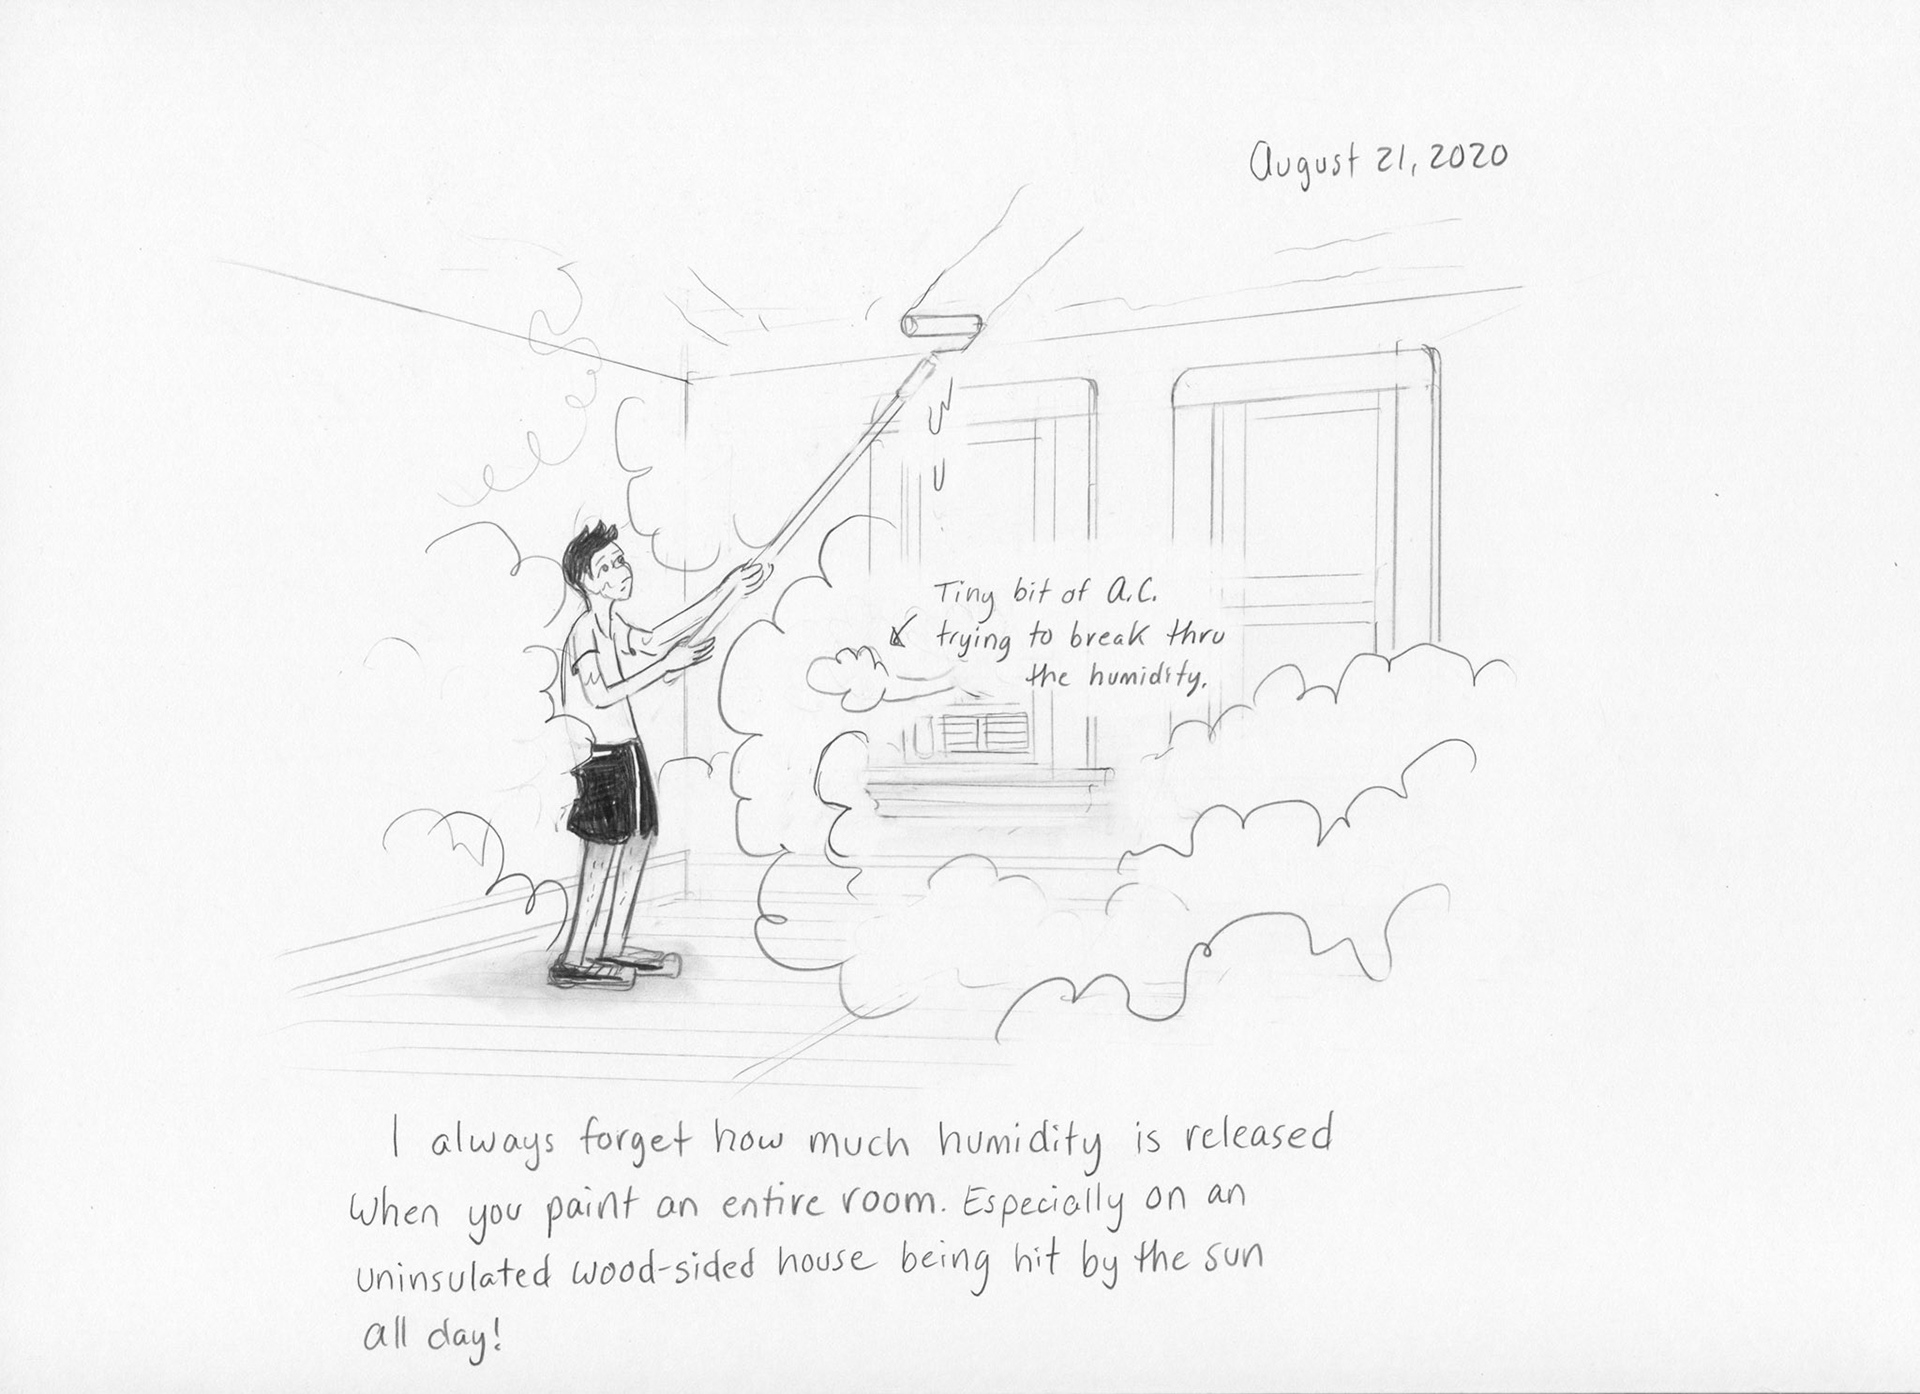 August 21, 2020
Tiny bit of A.C.
trying to break thru
the humidity.
I always forget how much humidity is released
when you paint an entire room. Especially on an
uninsulated wood-sided house being hit by the sun
all day!